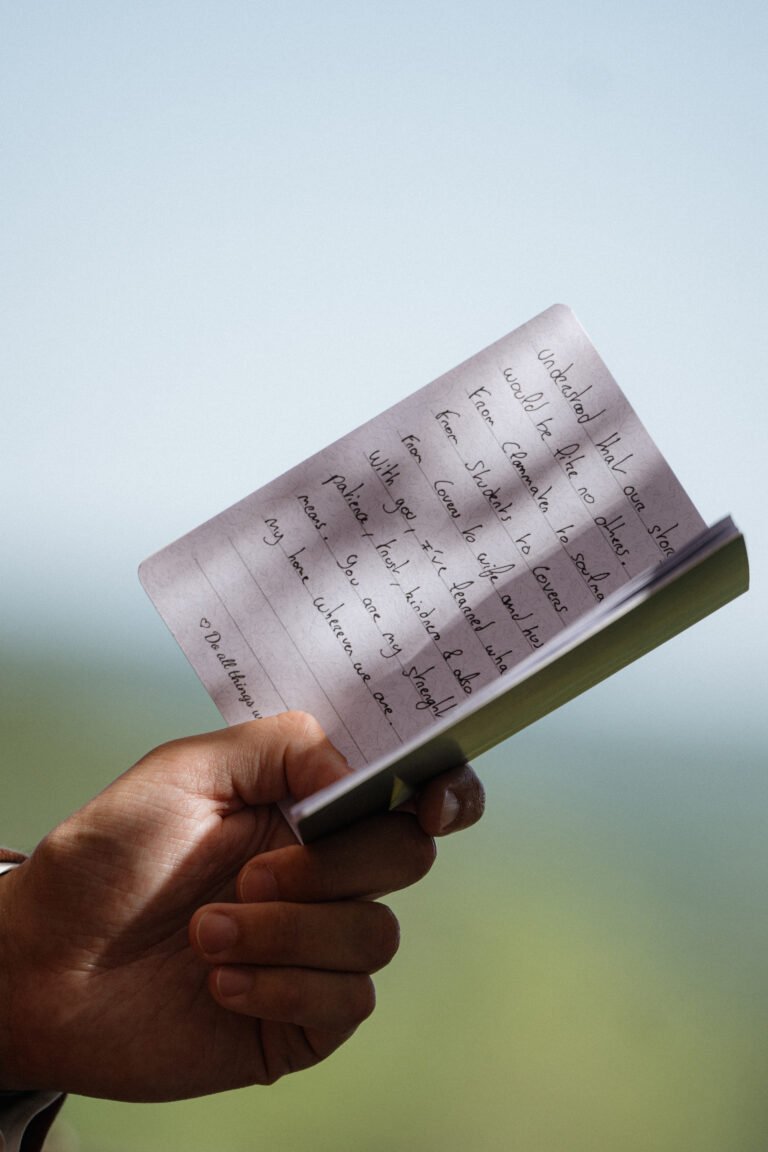 understood that our stor
would be like no others.
From classmates to soulma
From students to lovers
From lovers to wife and hus
With you, I've learned wha
patience, trust, kindness & also
means. You are my strenght
my home wherever we are.
♡ Do all things w